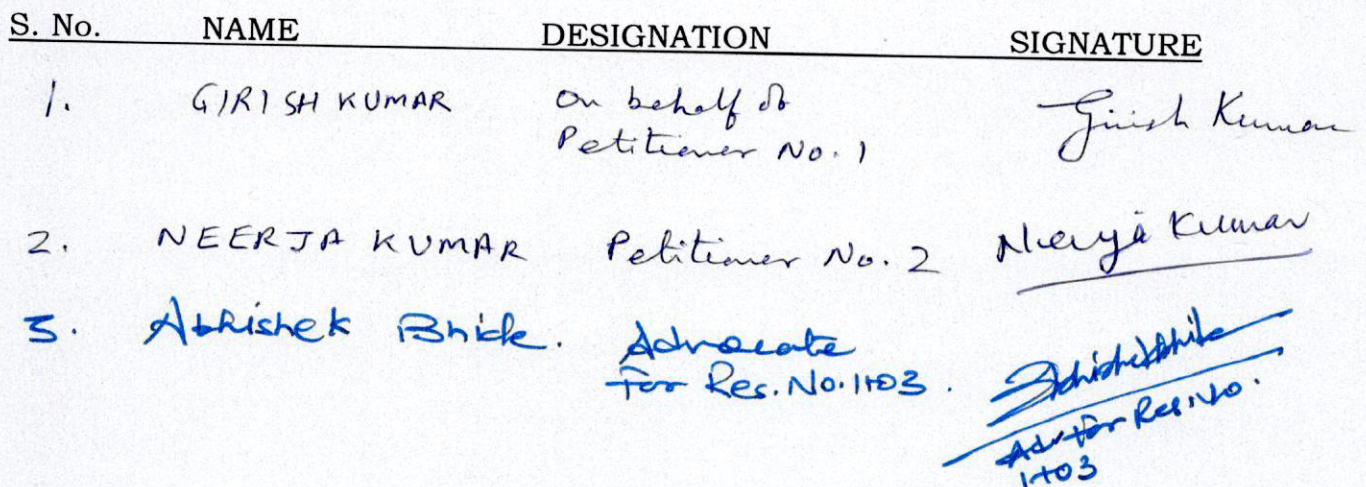 S. No. NAME DESIGNATION SIGNATURE
1. GIRISH KUMAR On behalf of Girish Kumar
Petitioner No. 1
2. NEERJA KUMAR Petitioner No. 2 Neerja Kumar
3. Abhishek Bhide. Advocate
For Res. No. 1 to 3.
Adv for Res. No.
1 to 3